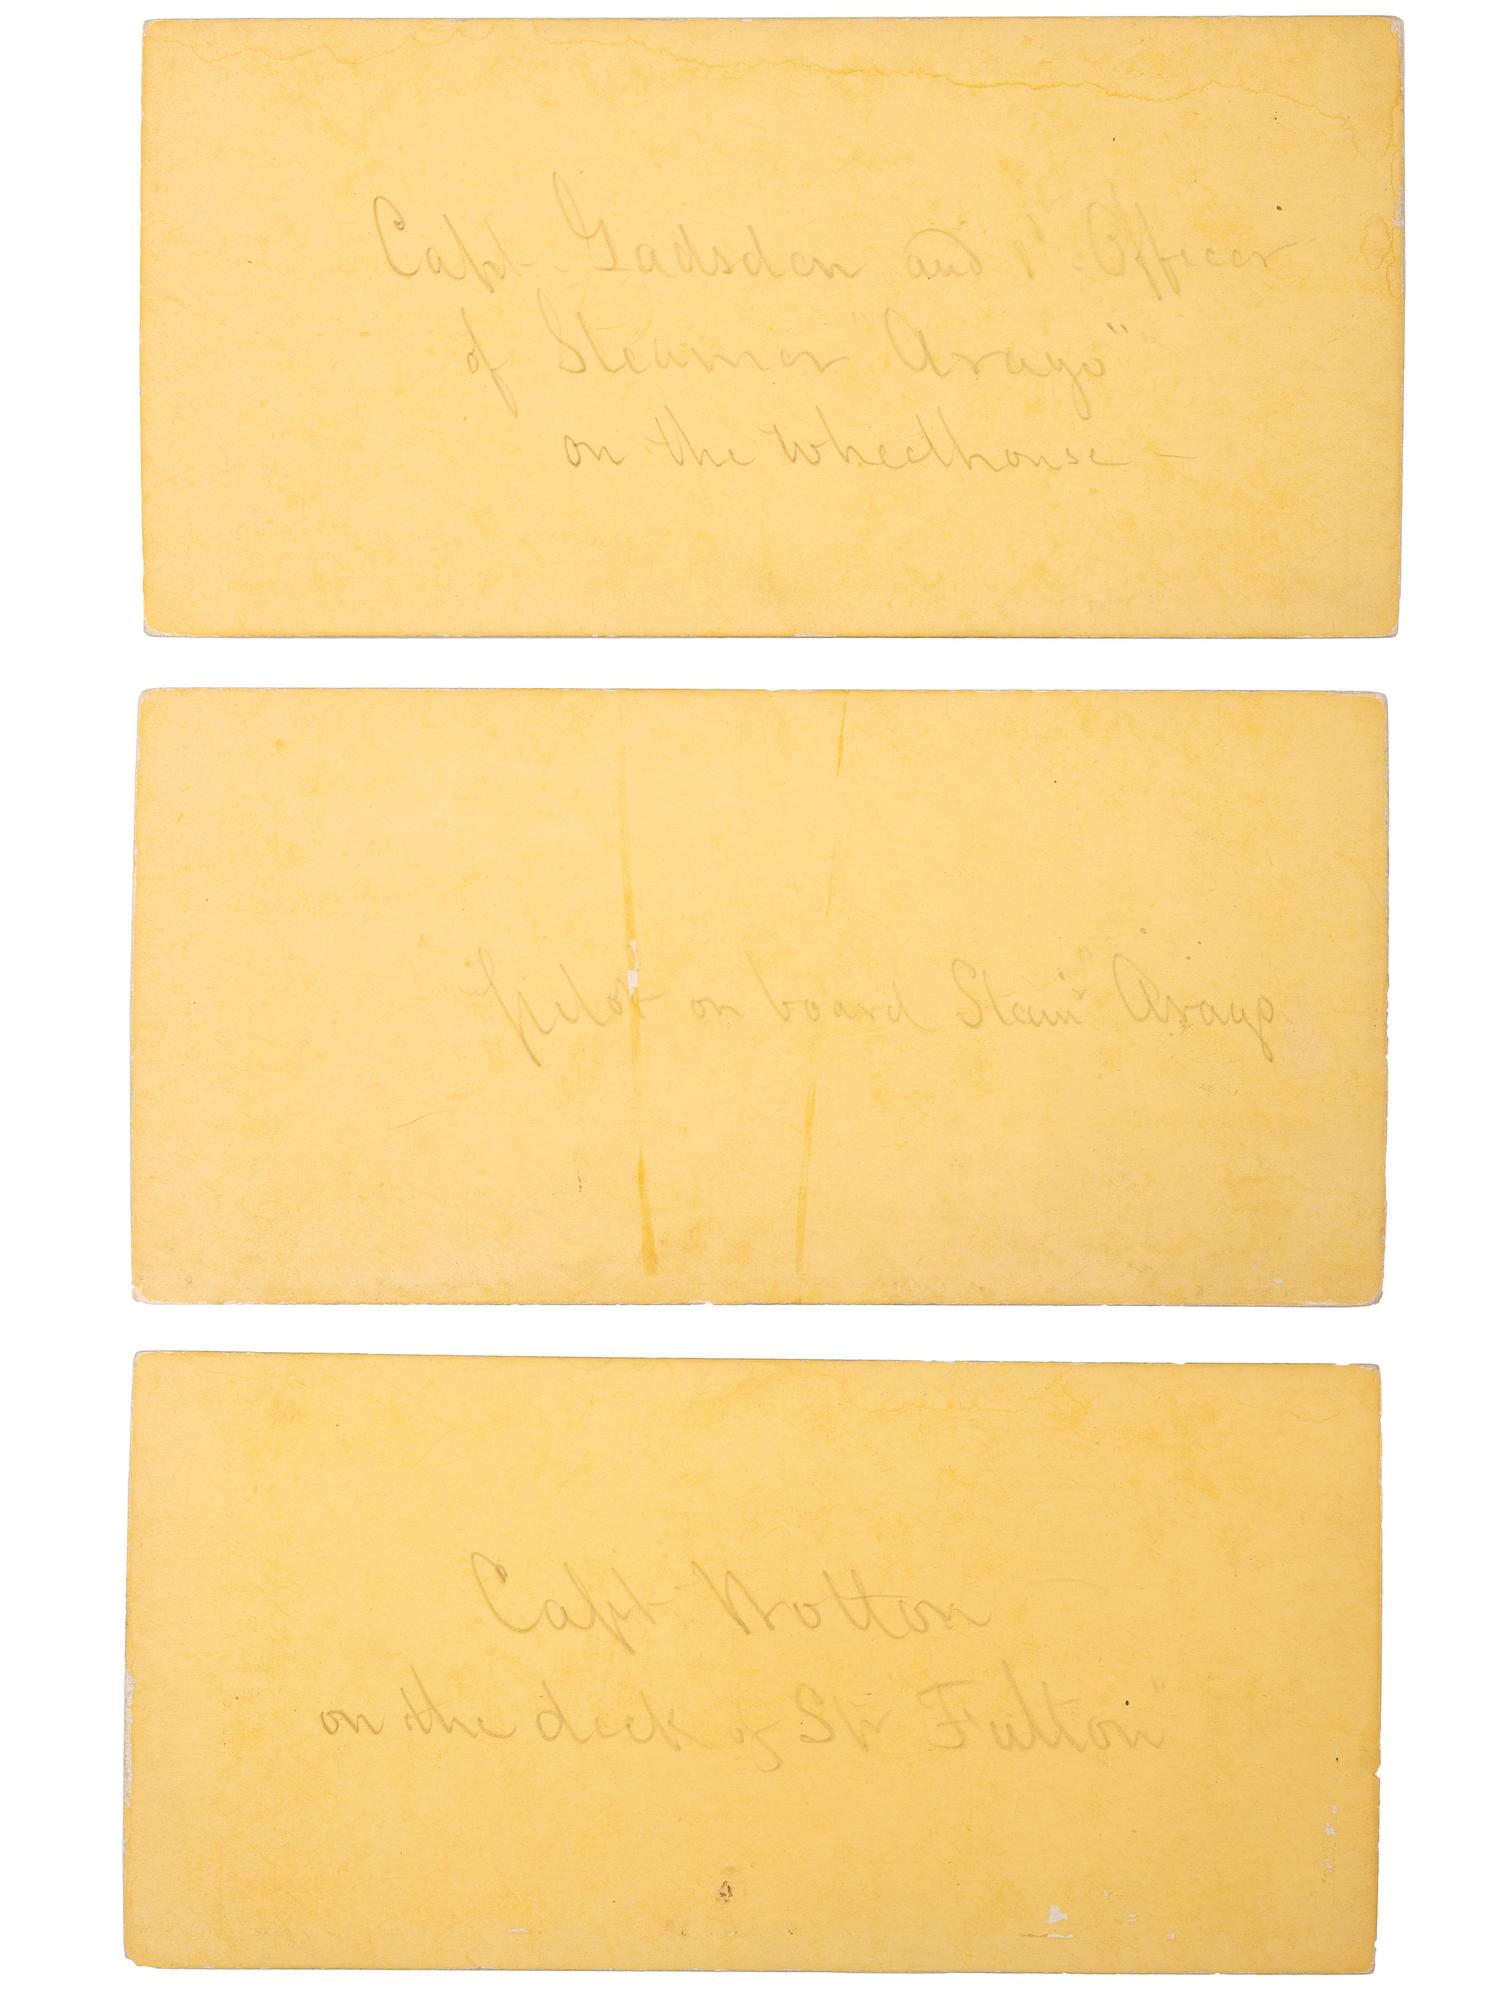 Capt Gadsden and 1st Officer
of Steamer "Arago"
on the wheelhouse -
pilot on board Steamr Arago
Capt Wotton
on the deck of Str "Fulton"